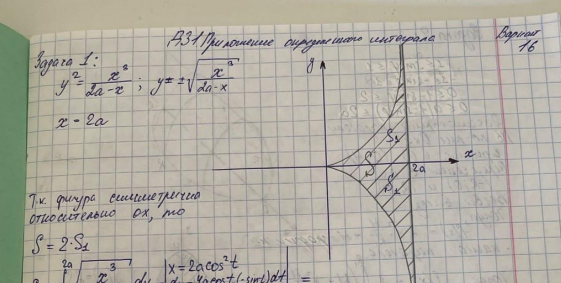 ДЗ1. Приложение определенного интеграла
Вариант 16
Задача 1:
y² = x³/(2a-x) ; y = ±√(x³/(2a-x))
x = 2a
y
S₁
S
S₁
2a
x
Т.к. фигура симметрична
относительно ox, то
S = 2·S₁
2a √ x³ | x = 2a cos²t
(-sin t) dt | =